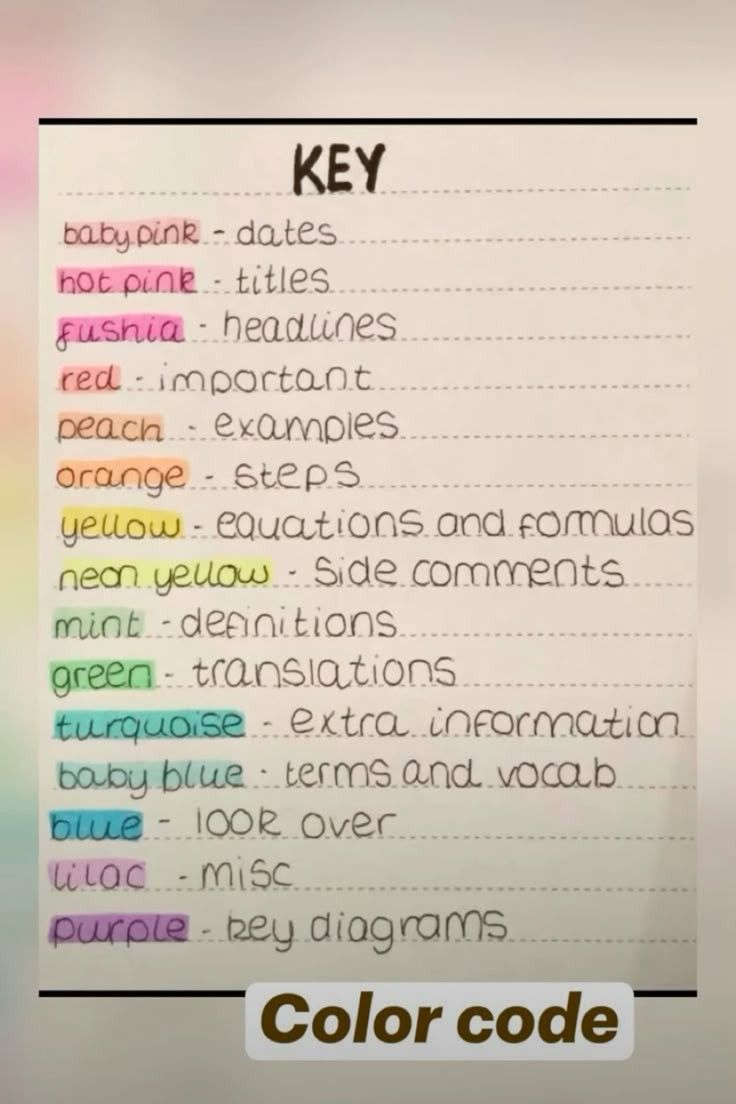 KEY
baby pink - dates
hot pink - titles
fushia - headlines
red - important
peach - examples
orange - steps
yellow - equations and formulas
neon yellow - side comments
mint - definitions
green - translations
turquoise - extra information
baby blue - terms and vocab
blue - look over
lilac - misc
purple - key diagrams
Color code